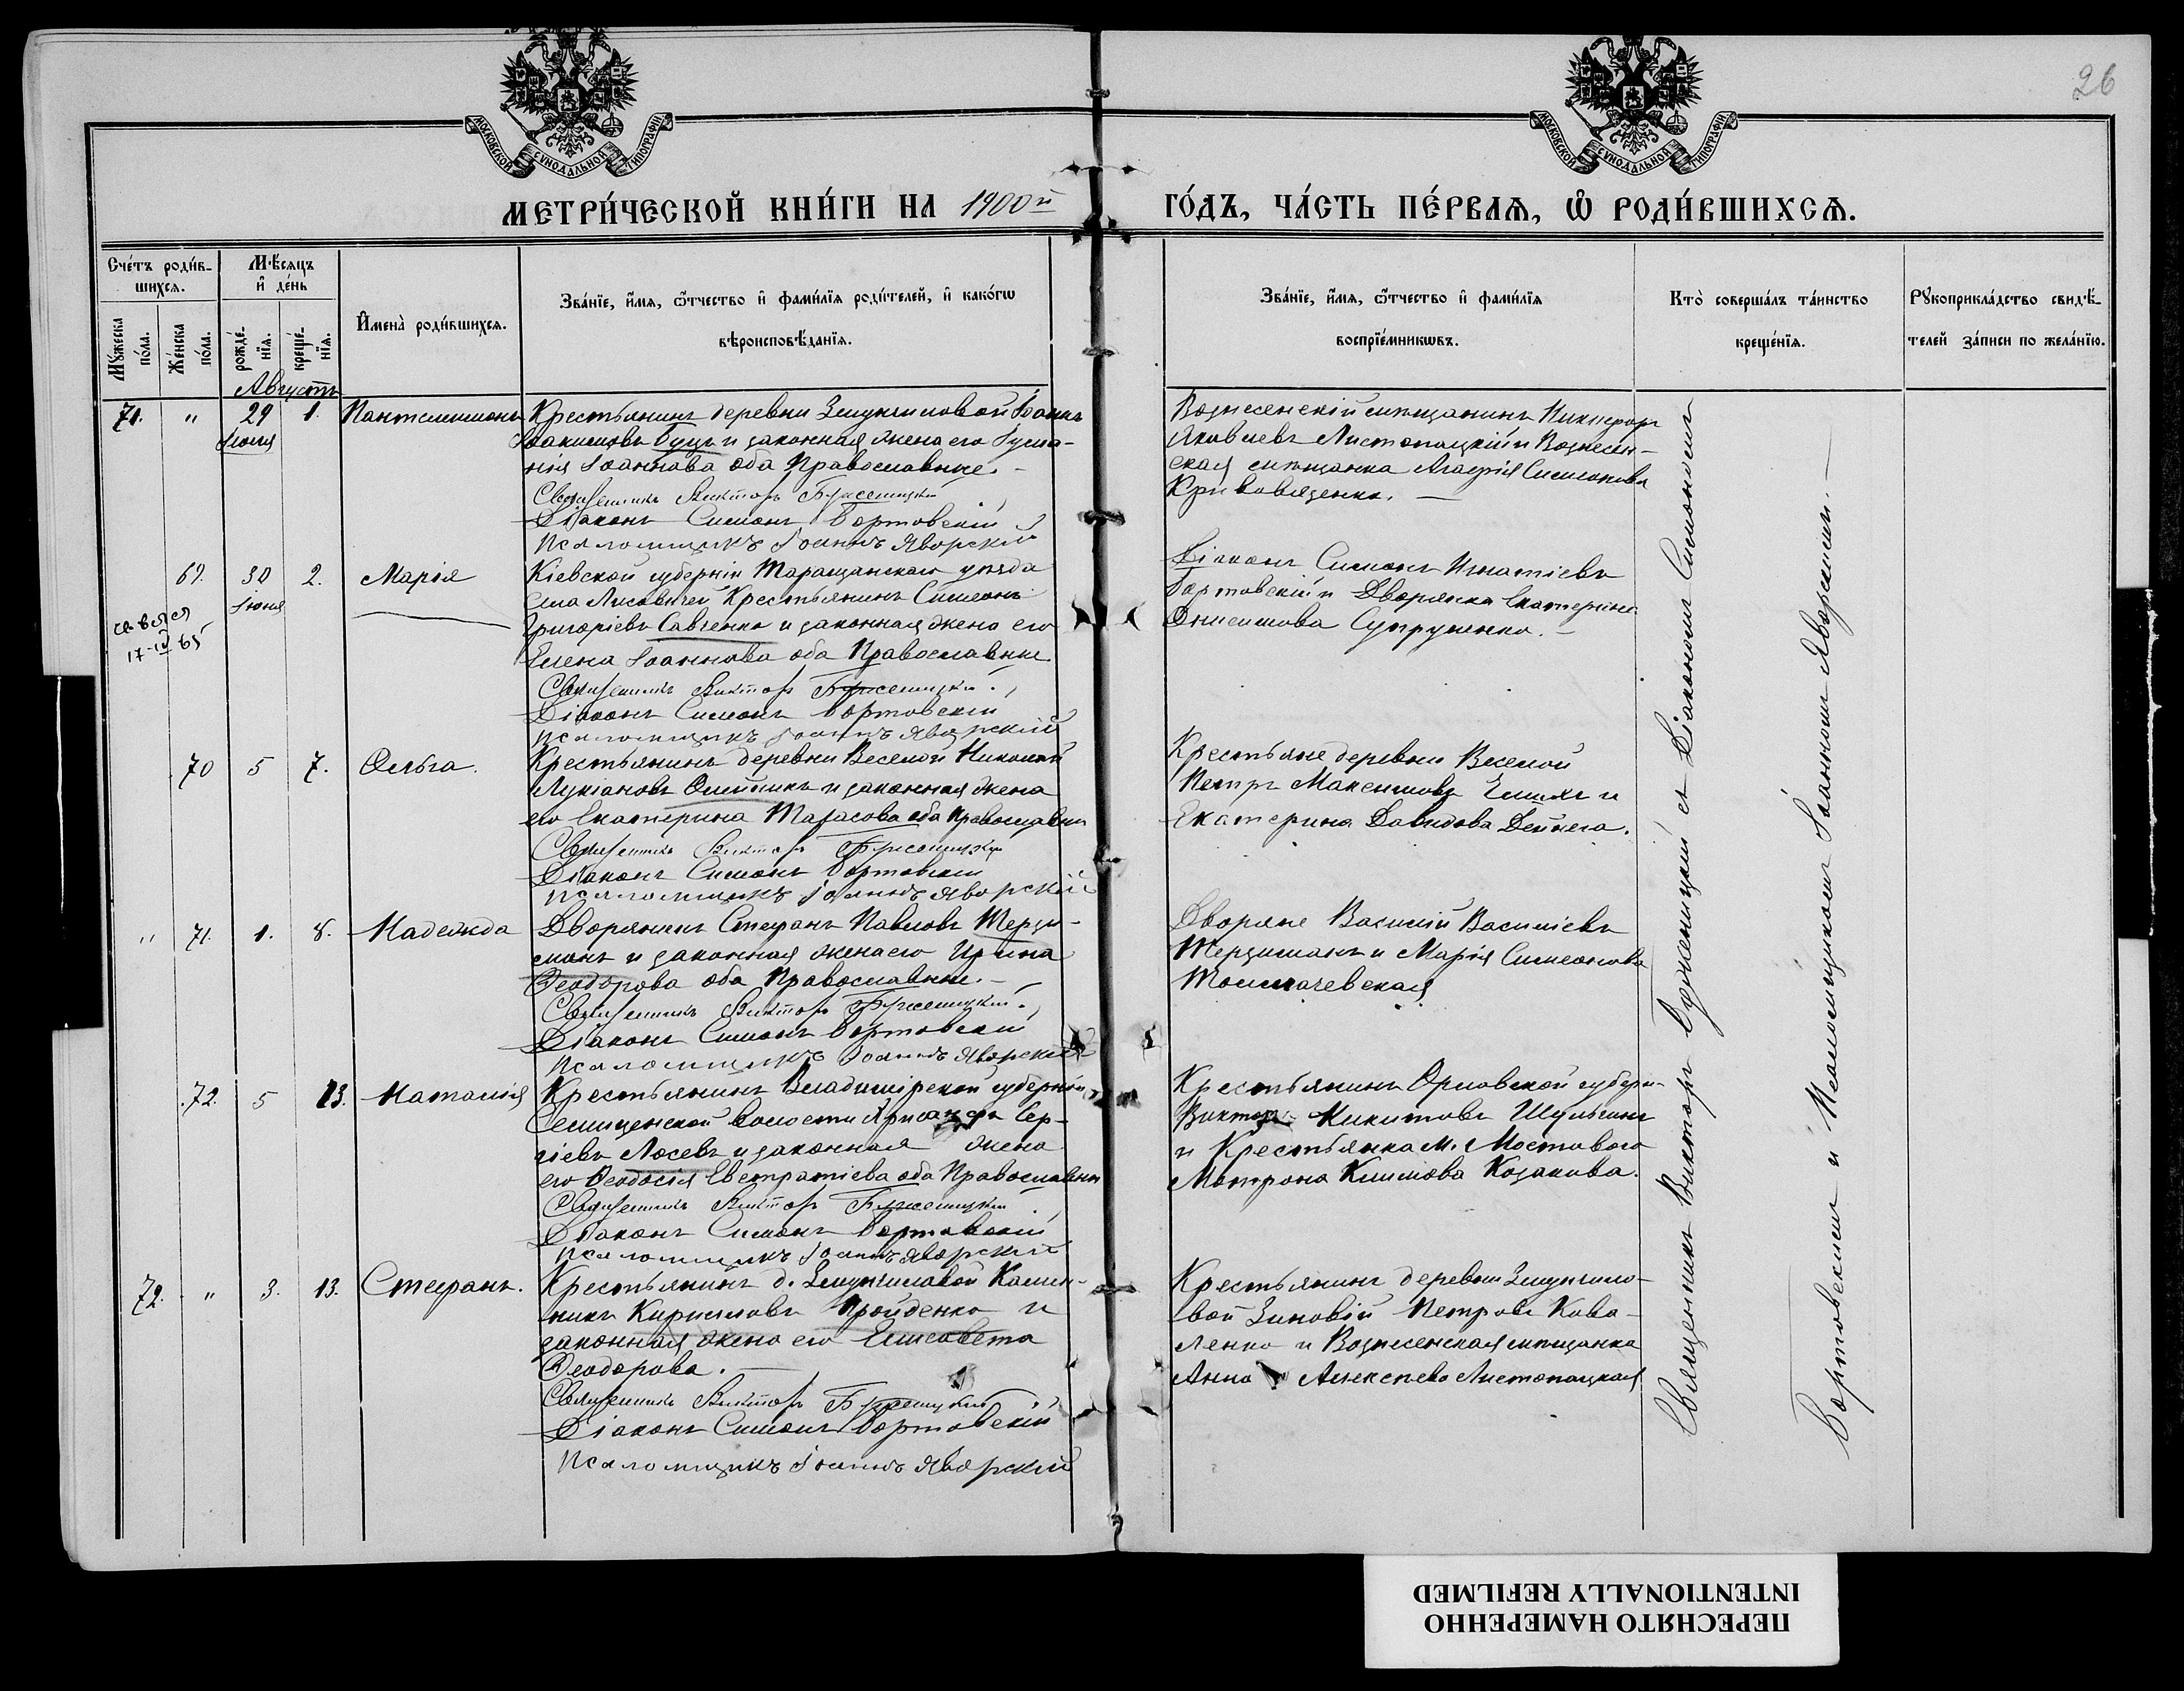 26
МОСКОВСКОЙ СѴНОДАЛЬНОЙ ТИПОГРАФІИ
МОСКОВСКОЙ СѴНОДАЛЬНОЙ ТИПОГРАФІИ
МЕТРИ́ЧЕСКОЙ КНИ́ГИ НА 1900й ГО́ДЪ, ЧА́СТЬ ПЕ́РВАЯ, Ѡ РОДИ́ВШИХСЯ.
Сче́тъ роди́вшихся.
Мꙋ́жеска по́ла.
Же́нска по́ла.
Мѣ́сяцъ и҆ де́нь
рожде́нїя.
креще́нїя.
И҆мена̀ роди́вшихся.
Зва́нїе, и҆́мя, ѻ҆́тчество и҆ фами́лїя роди́телей, и҆ како́гѡ
вѣроисповѣ́данїя.
Зва́нїе, и҆́мя, ѻ҆́тчество и҆ фами́лїя
воспрїе́мникѡвъ.
Кто̀ соверша́лъ та́инство
креще́нїя.
Рꙋкоприкла́дство свидѣ́телей за́писи по жела́нїю.
Августъ
71. " 29 1. Пантелимонъ
Іюля
Крестьянинъ деревни Змунчиловой Іоаннъ
Іоакимовъ Буцъ и законная жена его
Іоаннова оба Православные.
Священникъ Викторъ
Діаконъ Симонъ Бортовскій
Псаломщикъ Іоаннъ Яворскій
Вознесенскій мѣщанинъ Никифоръ
Яковлевъ Листопацкій и Вознесен-
ская мѣщанка Агафія Симеонова
Кривовязенко.
69. 30 2. Марія
Іюня
17-IV 65
Кіевской губерніи Таращанскаго уѣзда
села Лисовичей Крестьянинъ Симеонъ
Григоріевъ Савченко и законная жена его
Елена Іоаннова оба Православные
Священникъ Викторъ
Діаконъ Симонъ Бортовскій
Псаломщикъ Іоаннъ Яворскій
Діаконъ Симонъ Игнатіевъ
Бортовскій и Дворянка Екатерина
Онисимова Супруненко.
70 5 7. Ольга.
Крестьянинъ деревни Веселой Николай
Лукіановъ Олейникъ и законная жена
его Екатерина Тарасова оба Православные
Священникъ Викторъ
Діаконъ Симонъ Бортовскій
Псаломщикъ Іоаннъ Яворскій
Крестьяне деревни Веселой
Петръ Максимовъ и
Екатерина Давидова Дейнега.
" 71. 1. 8. Надежда
Дворянинъ Стефанъ Павловъ Терзи-
манъ и законная жена его Ирина
Ѳеодорова оба Православные.
Священникъ Викторъ
Діаконъ Симонъ Бортовскій
Псаломщикъ Іоаннъ Яворскій
Дворяне Василій Василіевъ
Терзиманъ и Марія Симеонова
Толмачевская
72. 5 13. Наталія
Крестьянинъ Владимірской губерніи
волости Сер-
гіевъ Лосевъ и законная жена
его Ѳеодосія Евстратіева оба Православные
Священникъ Викторъ
Діаконъ Симонъ Бортовскій
Псаломщикъ Іоаннъ Яворскій
Крестьянинъ Орловской губерн-
Викторъ Никитовъ Шульгинъ
и Крестьянка м. Мостового
Матрона Климова Козакова.
72. " 3. 13. Стефанъ.
Крестьянинъ д. Змунчиловой Калин-
никъ Кирилловъ Пройденко и
законная жена его Елисавета
Ѳеодорова.
Священникъ Викторъ
Діаконъ Симонъ Бортовскій
Псаломщикъ Іоаннъ Яворскій
Крестьянинъ деревни Змунчило-
вой Зиновій Петровъ Кова-
ленко и Вознесенская мѣщанка
Анна Алексѣева Листопацкая
Священникъ Викторъ съ Діакономъ Симономъ
Бортовскимъ и Псаломщикомъ Іоанномъ Яворскимъ.
ПЕРЕСНЯТО НАМЕРЕННО
INTENTIONALLY REFILMED